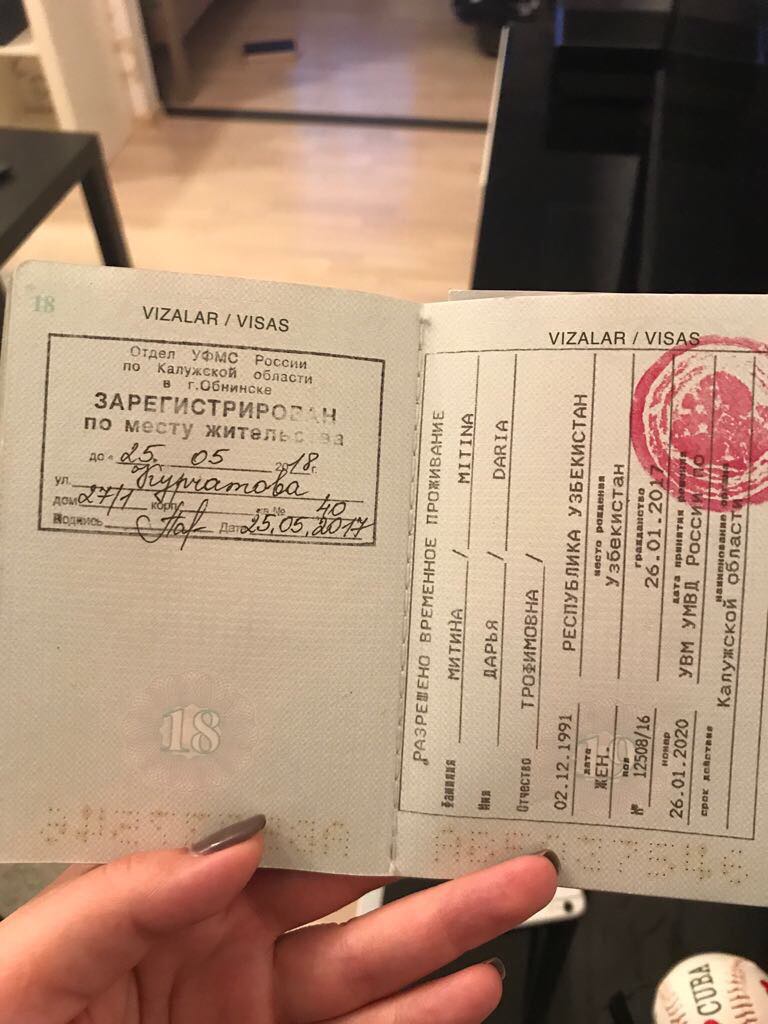 18
VIZALAR / VISAS
Отдел УФМС России
по Калужской области
в г.Обнинске
ЗАРЕГИСТРИРОВАН
по месту жительства
до « 25. 05 2018г.
ул. Курчатова
дом 27/1 корп. кв № 40
Подпись Дата 25.05.2017
18
VIZALAR / VISAS
РАЗРЕШЕНО ВРЕМЕННОЕ ПРОЖИВАНИЕ
МИТИНА / MITINA
Фамилия
ДАРЬЯ / DARIA
Имя
ТРОФИМОВНА /
Отчество
02.12.1991 РЕСПУБЛИКА УЗБЕКИСТАН
дата место рождения
ЖЕН. Узбекистан
пол гражданство
№ 12508/16 26.01.2017
номер дата принятия решения
26.01.2020 УВМ УМВД РОССИИ ПО
срок действия наименование органа
Калужской области
CUBA